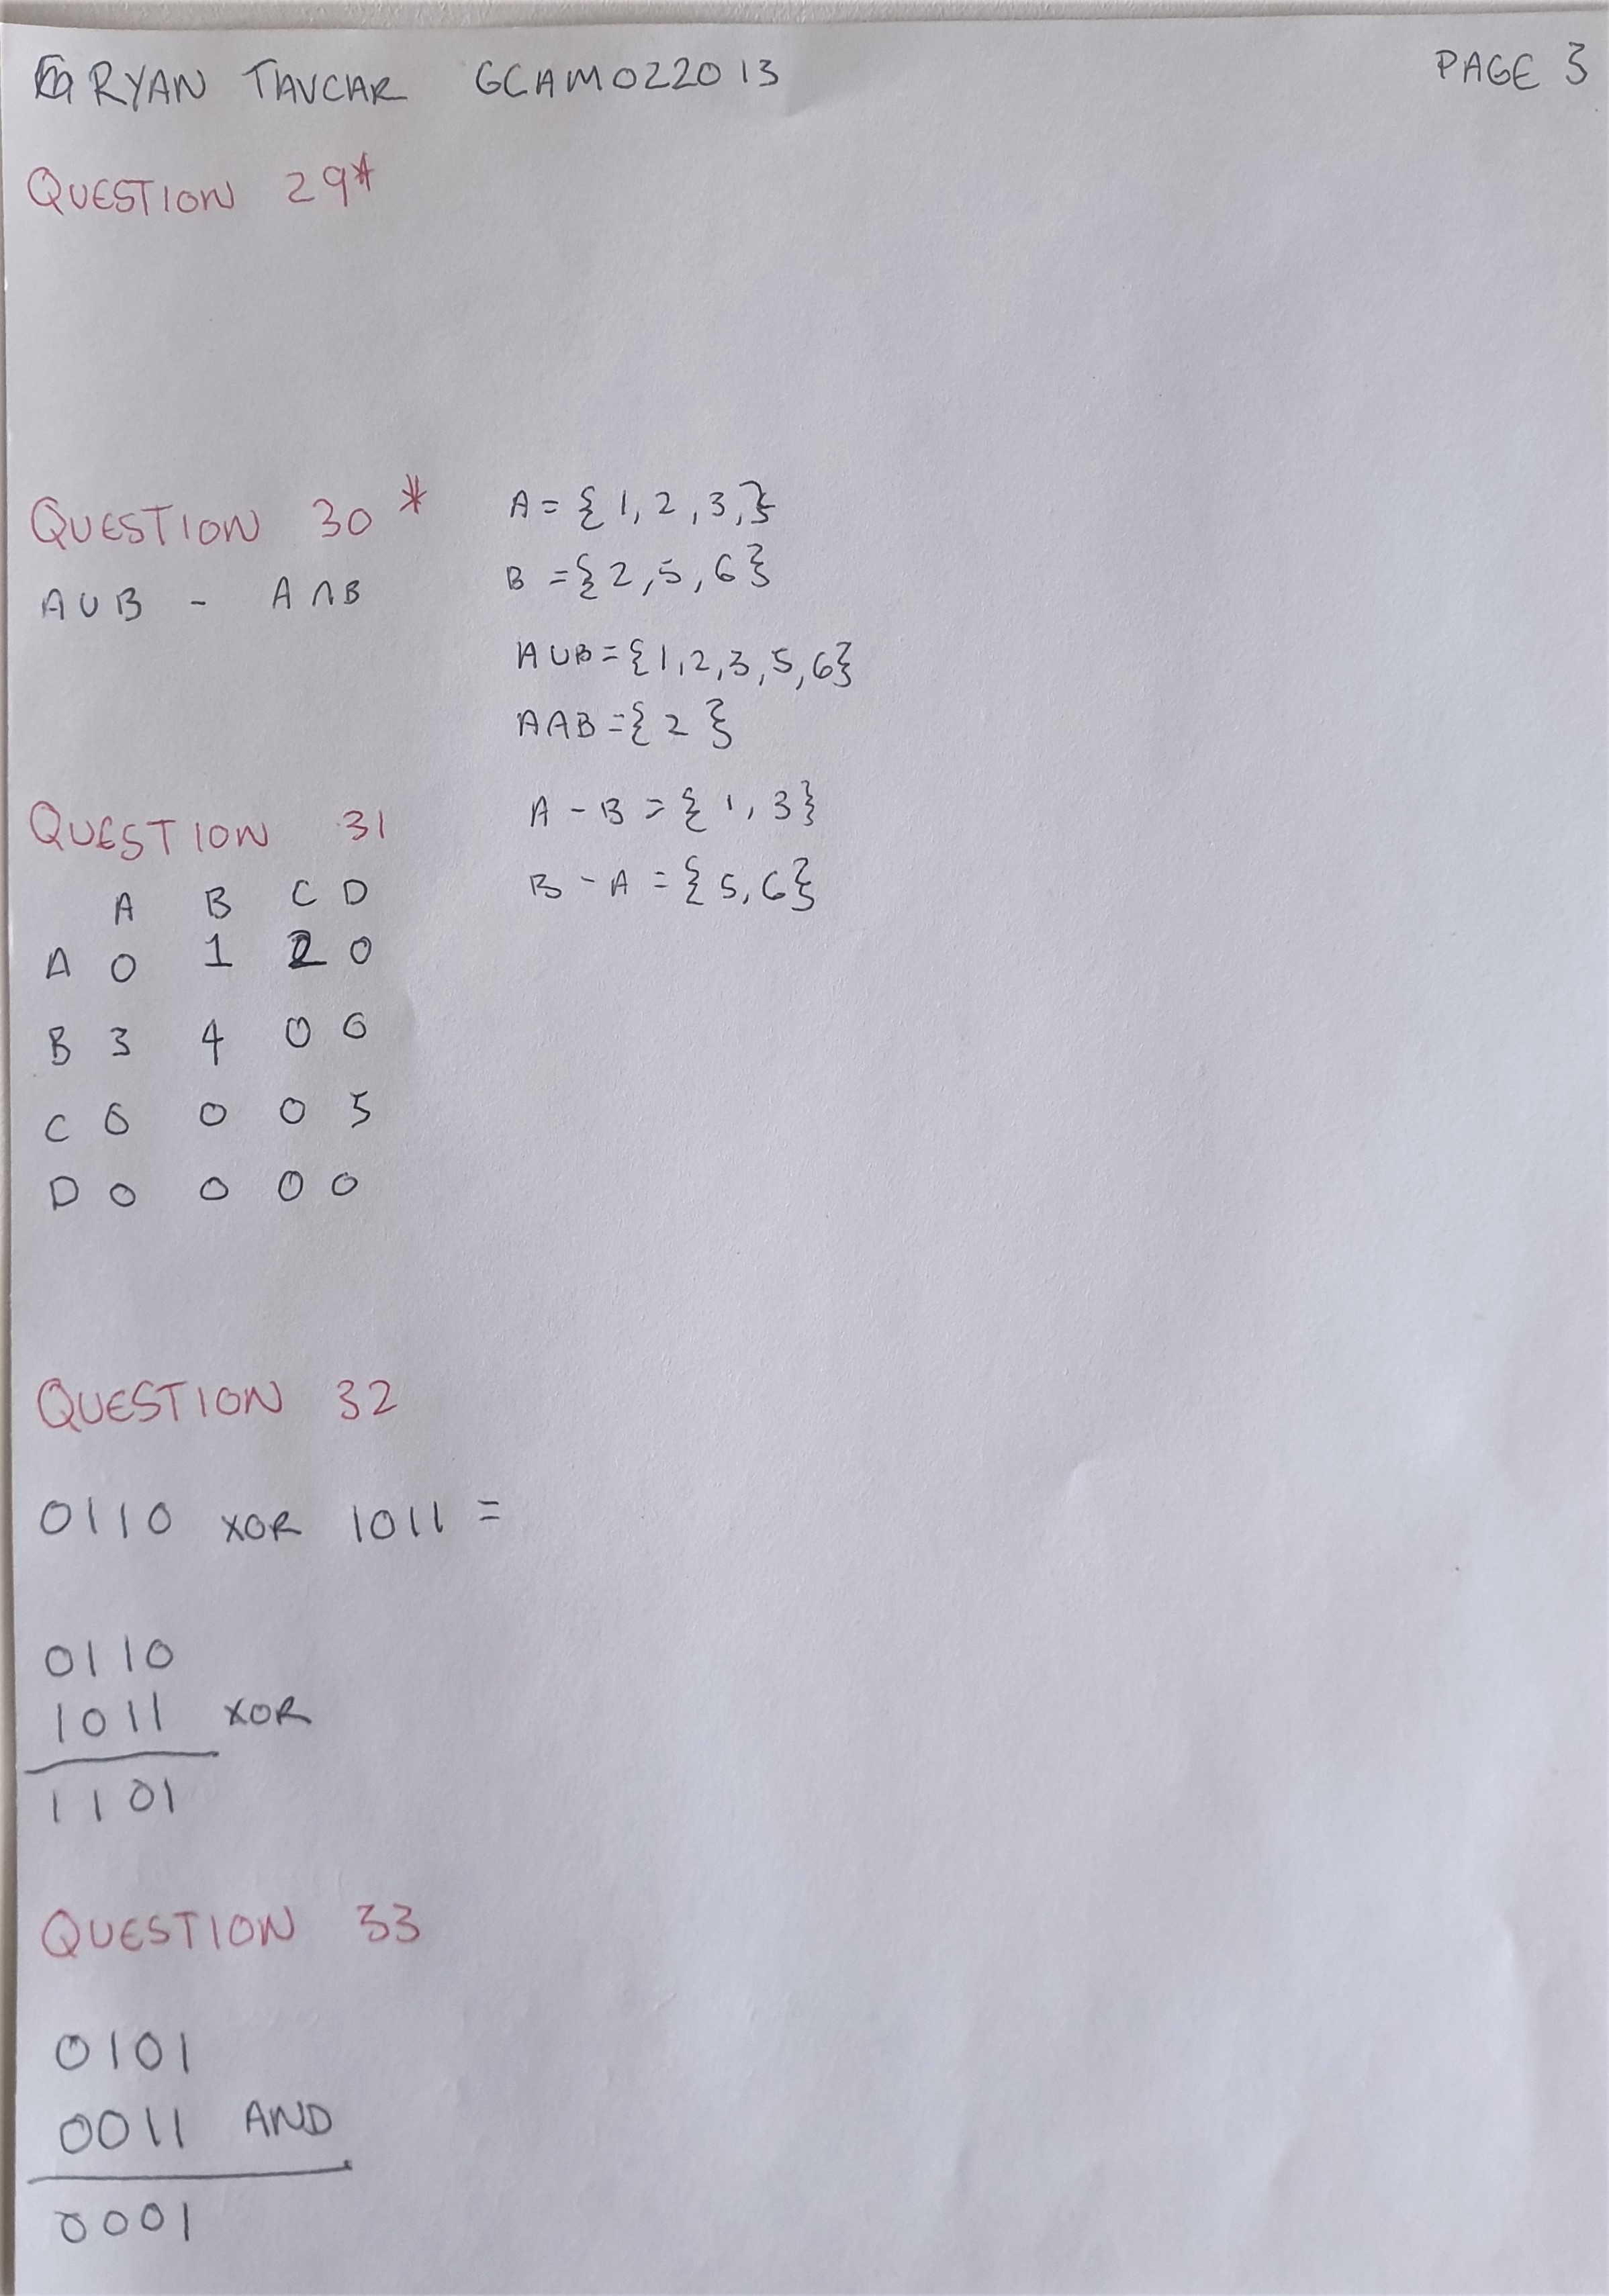 RYAN TAVCHAR GCAM022013 PAGE 3
QUESTION 29*
QUESTION 30*
A∪B - A∩B
A = {1, 2, 3,}
B = {2, 5, 6}
A∪B = {1, 2, 3, 5, 6}
A∩B = {2}
A - B = {1, 3}
B - A = {5, 6}
QUESTION 31
A B C D
A 0 1 2 0
B 3 4 0 0
C 0 0 0 5
D 0 0 0 0
QUESTION 32
0110 XOR 1011 =
0110
1011 XOR
1101
QUESTION 33
0101
0011 AND
0001